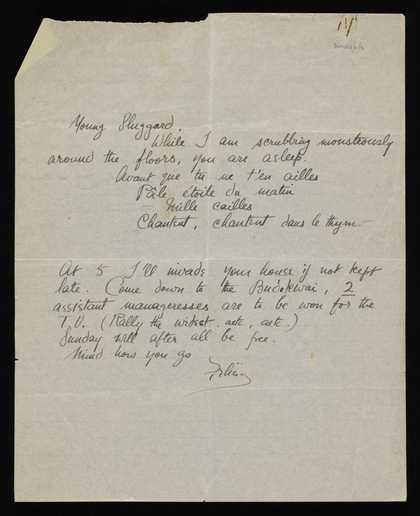 Young Sluggard,
While I am scrubbing monstrously
around the floors, you are asleep.
Avant que tu ne t'en ailles
Pâle étoile du matin
Mille cailles
Chantent, chantent dans le thym—
At 5 I'll invade your house if not kept
late. Come down to the, 2
assistant manageresses are to be won for the
T.U. (Rally the, etc.)
Sunday will after all be free.
Mind how you go